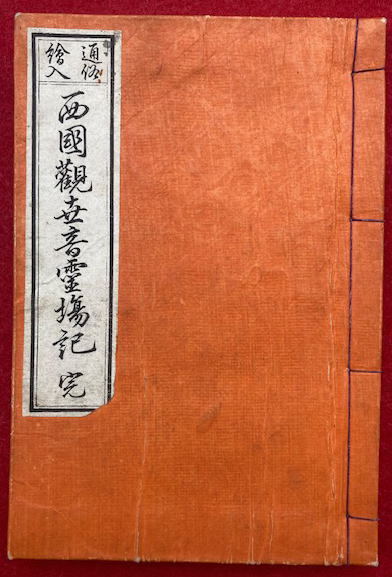 通俗
繪入
西國觀世音靈場記 完